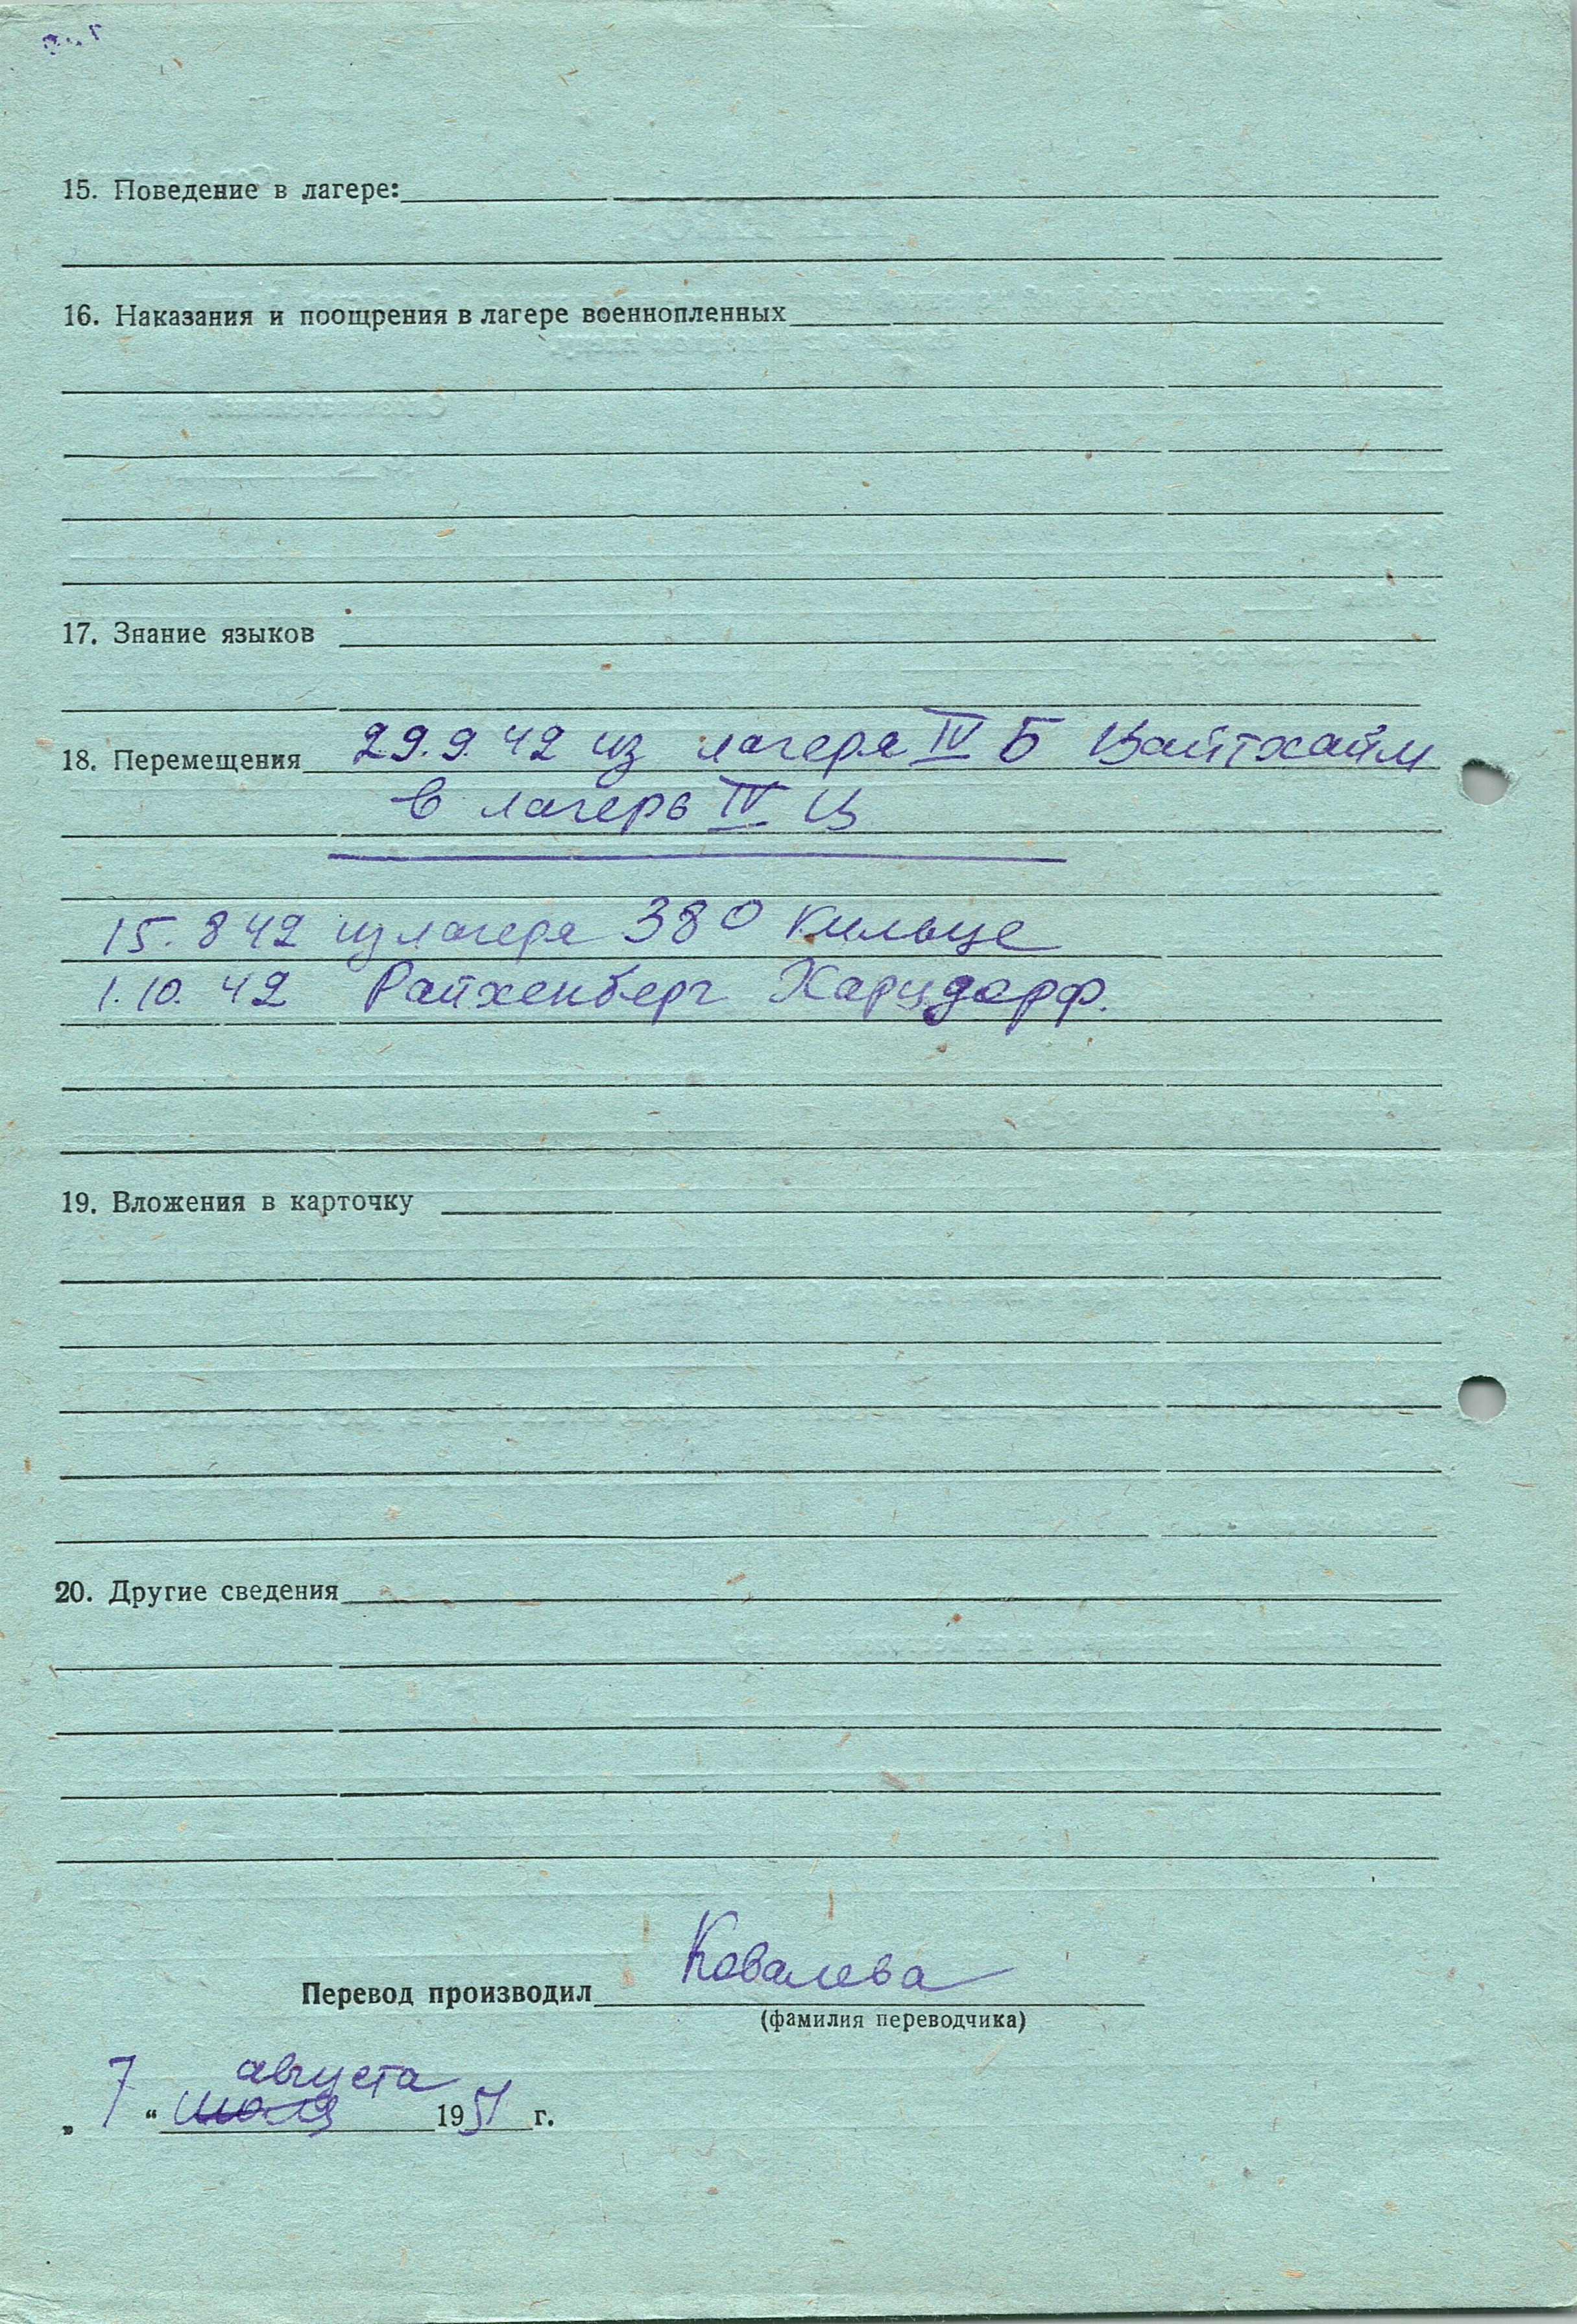 15. Поведение в лагере:
16. Наказания и поощрения в лагере военнопленных
17. Знание языков
18. Перемещения 29.9 42 из лагеря IV Б Цайтхайм
в лагерь IV Ц
15. 8 42 из лагеря 380 Кильце
1. 10. 42 Райхенберг Харцдорф.
19. Вложения в карточку
20. Другие сведения
Перевод производил Ковалева
(фамилия переводчика)
августа
„ 7 “ июля 1951 г.